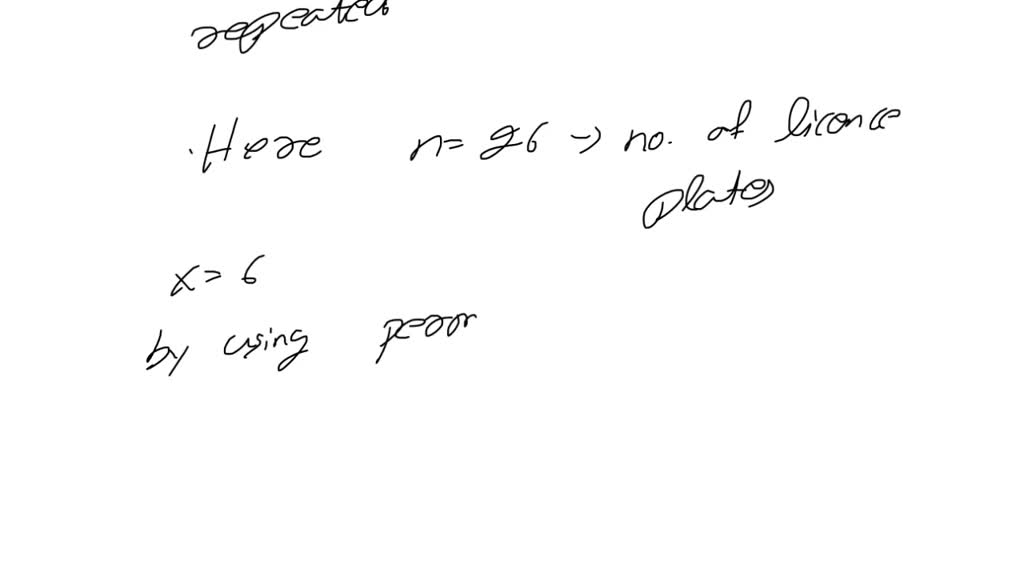 repeated
.Here n= 26 → no. of licence
plates
x= 6
by using perm